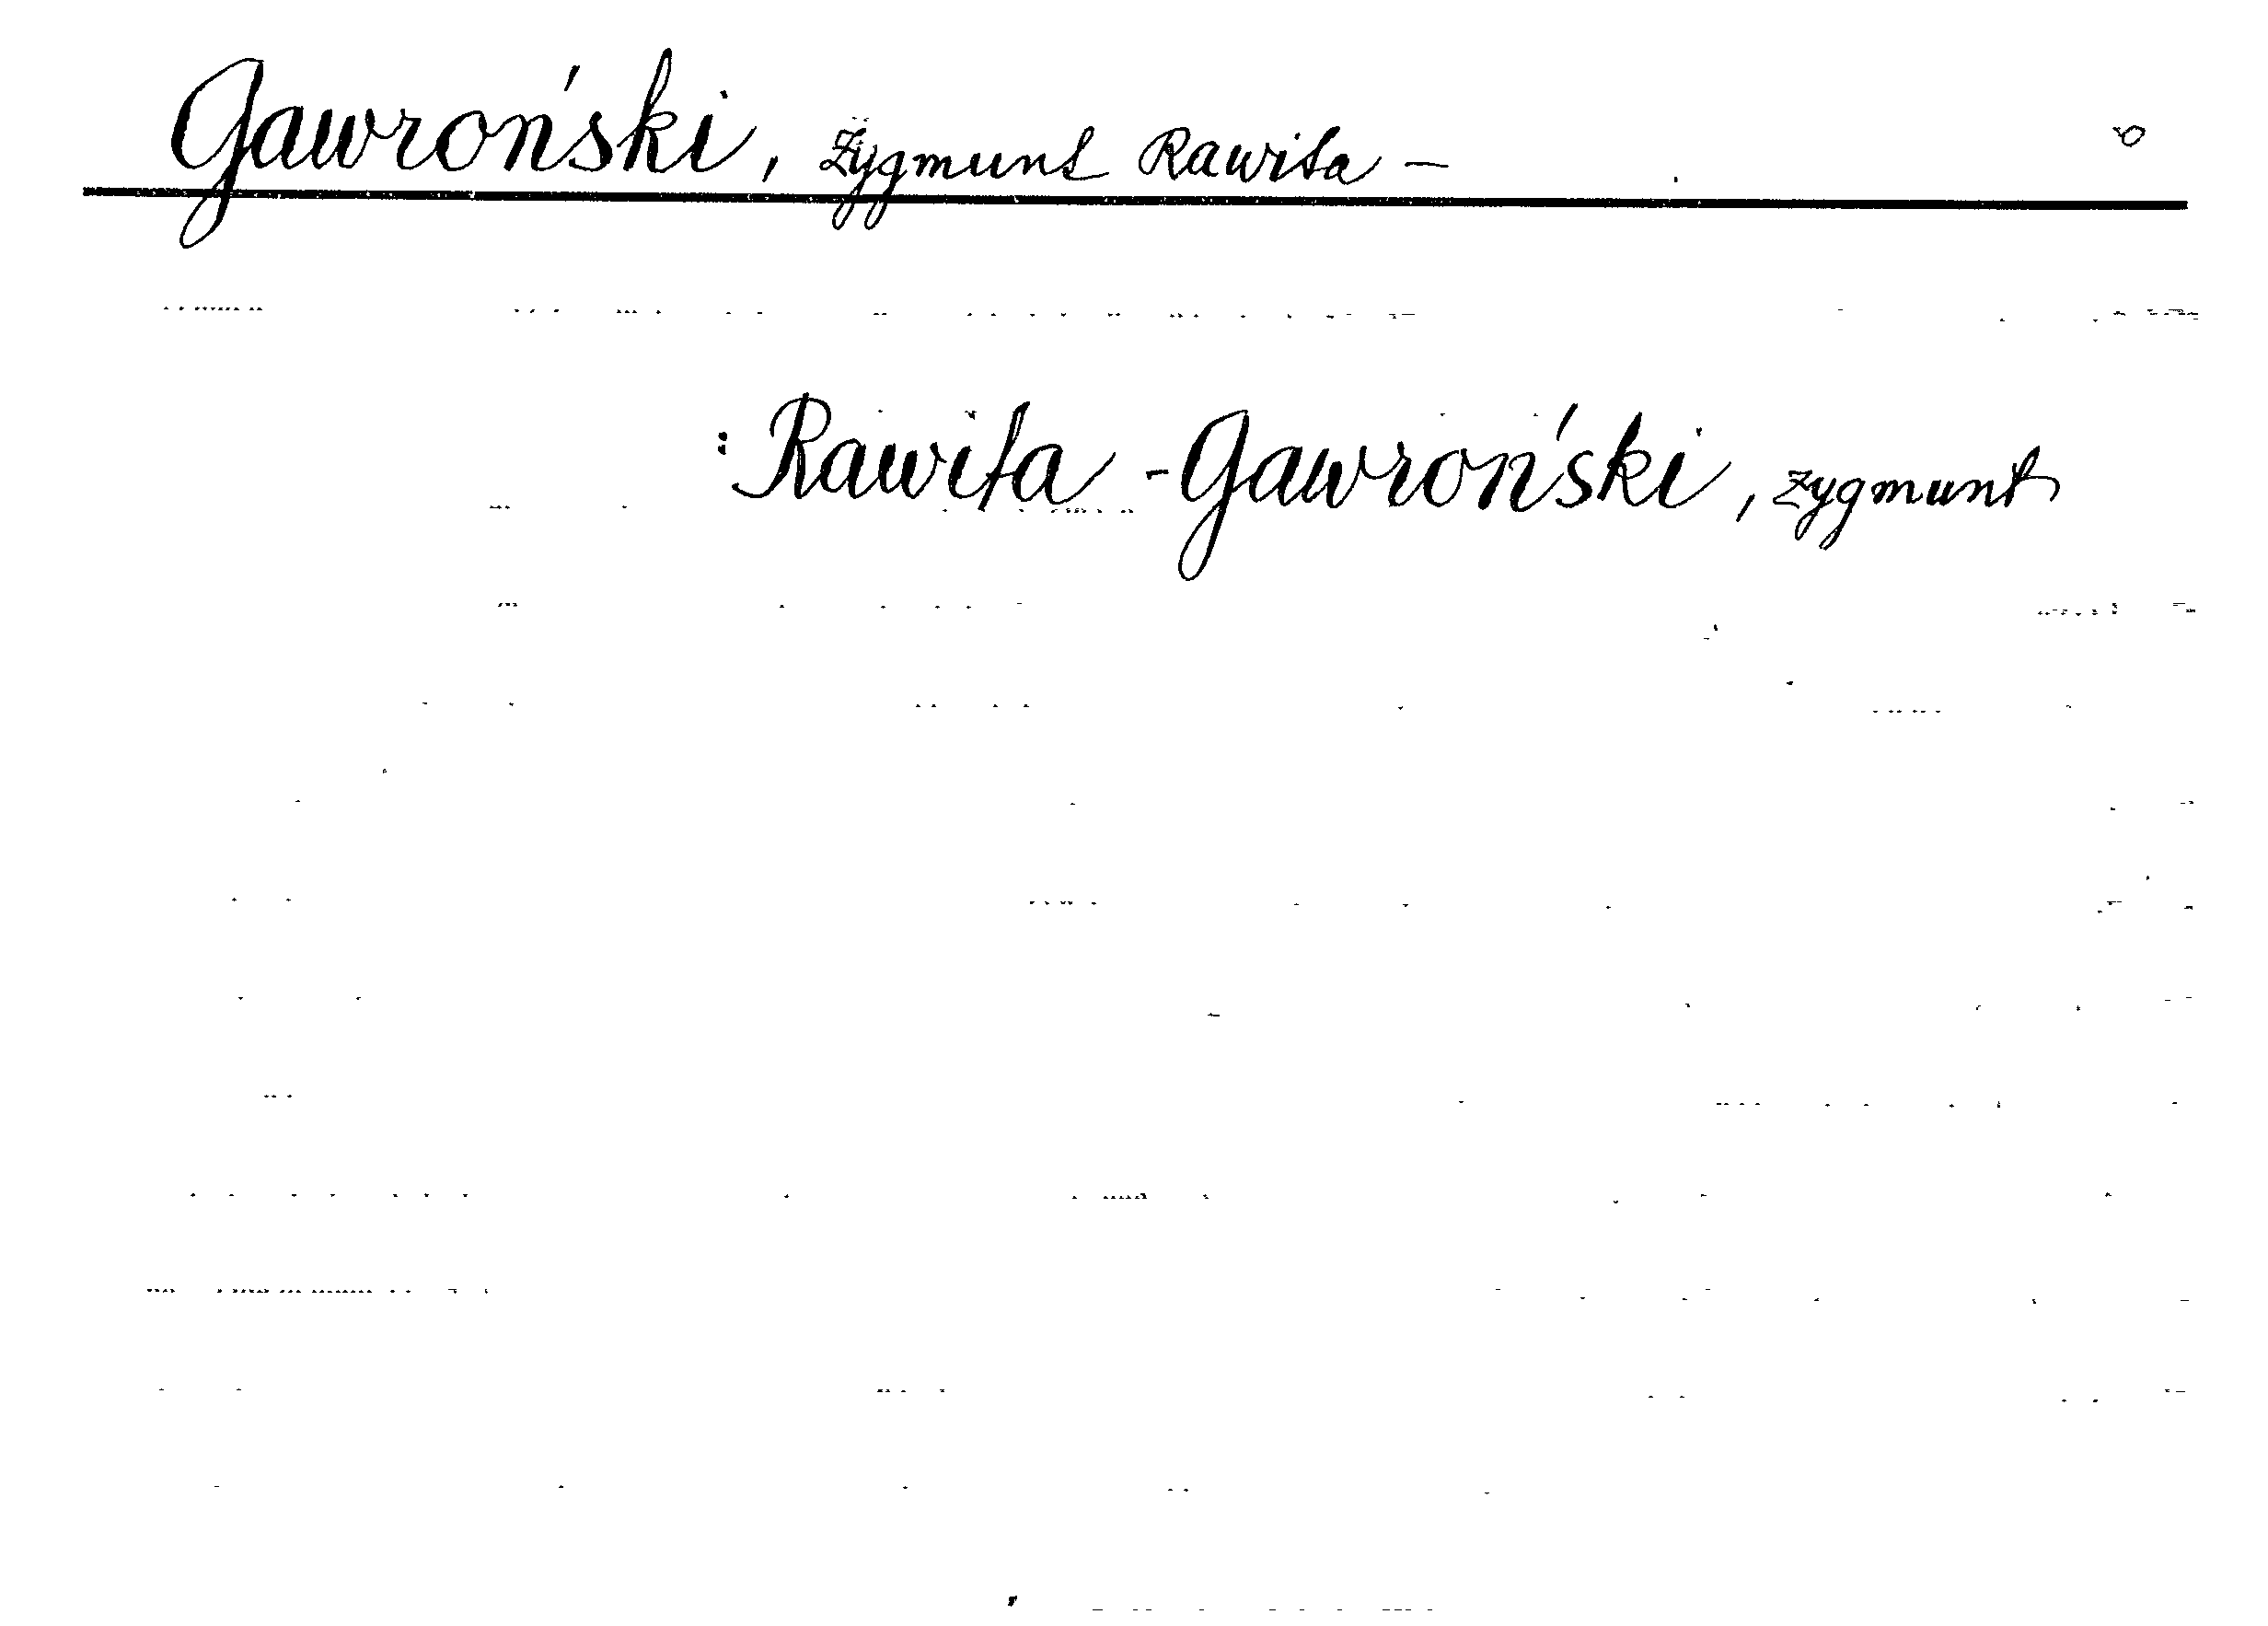 Gawroński, Zygmunt Rawita –
: Rawita - Gawroński, Zygmunt